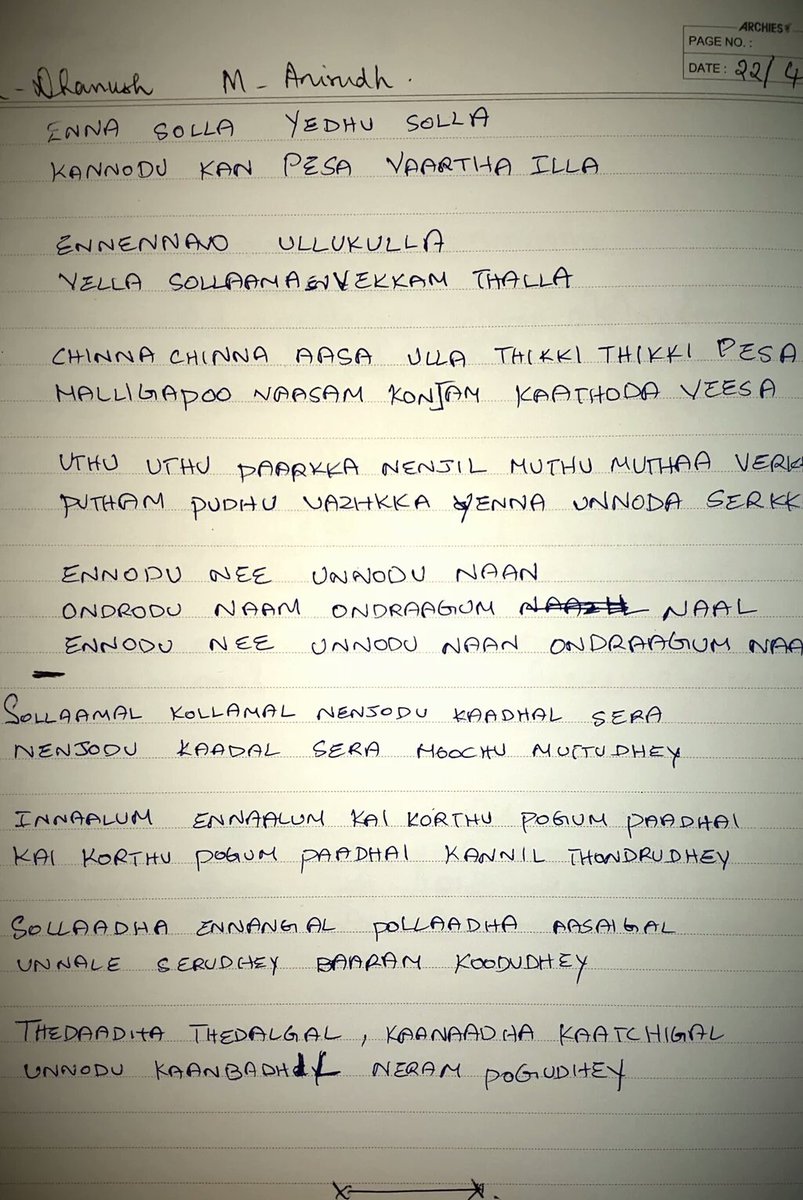 ARCHIES
PAGE NO. :
DATE : 22/4
- Dhanush M - Anirudh .
ENNA SOLLA YEDHU SOLLA
KANNODU KAN PESA VAARTHA ILLA
ENNENNAVO ULLUKULLA
VELLA SOLLAAMA EN VEKKAM THALLA
CHINNA CHINNA AASA ULLA THIKKI THIKKI PESA
MALLIGAPOO VAASAM KONJAM KAATHODA VEESA
UTHU UTHU PAARKKA NENJIL MUTHU MUTHAA VERK
PUTHAM PUDHU VAZHKKA YENNA UNNODA SERKK
ENNODU NEE UNNODU NAAN
ONDRODU NAAM ONDRAAGUM NAAL
ENNODU NEE UNNODU NAAN ONDRAAGUM NAA
SOLLAAMAL KOLLAMAL NENJODU KAADHAL SERA
NENJODU KAADAL SERA MOOCHU MUTTUDHEY
INNAALUM ENNAALUM KAI KORTHU POGUM PAADHAI
KAI KORTHU POGUM PAADHAI KANNIL THONDRUDHEY
SOLLAADHA ENNANGAL POLLAADHA AASAIGAL
UNNALE SERUDHEY BAARAM KOODUDHEY
THEDAADHA THEDALGAL , KAANAADHA KAATCHIGAL
UNNODU KAANBADHLY NERAM POGUDHEY